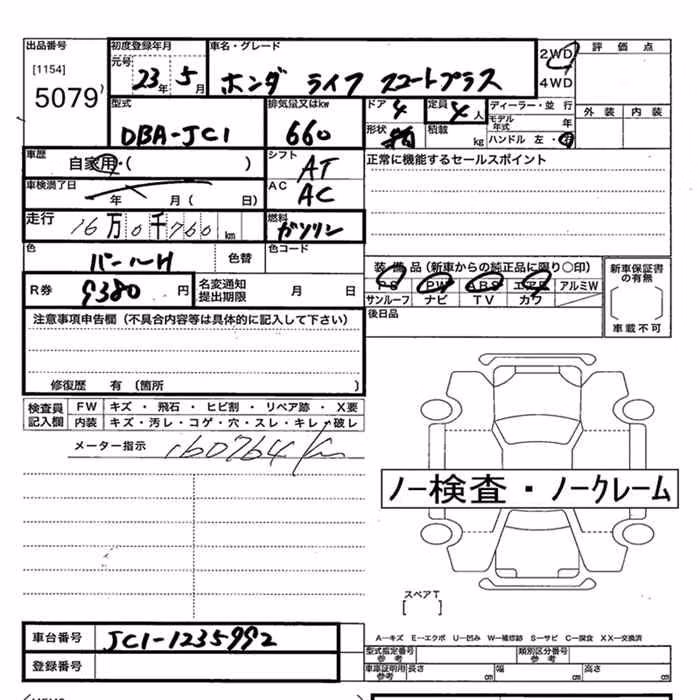 出品番号 初度登録年月 車名・グレード 2WD 評価点
[1154] 元号 4WD
5079 23年 5月 ホンダ ライフ スマートプラス
型式 排気量又はkw ドア 定員 ディーラー・並行 外装 内装
DBA-JC1 660 4 4人 モデル年式 年
形状 積載 kg ハンドル 左・右
車歴 シフト 正常に機能するセールスポイント
自家用・( ) AT
車検満了日 AC
年 月( 日) AC
走行 燃料
16万0千760km ガソリン
色 色替 色コード 装備品(新車からの純正品に限り○印) 新車保証書の有無
パール PS PW ABS エアB アルミW
R券 9380円 名変通知提出期限 月 日 サンルーフ ナビ TV カワ
後日品 車載不可
注意事項申告欄(不具合内容等は具体的に記入して下さい)
修復歴 有〔箇所 〕
検査員記入欄 FW キズ・飛石・ヒビ割・リペア跡・X要
内装 キズ・汚レ・コゲ・穴・スレ・キレ・破レ
メーター指示 160764km
ノー検査・ノークレーム
スペアT
[ ]
車台番号 JC1-1235992
A―キズ E―エクボ U―凹み W―補修跡 S―サビ C―腐食 XX―交換済
登録番号 型式指定番号 参考 類別区分番号 参考
車車証明用 参考 長さ cm 幅 cm 高さ cm